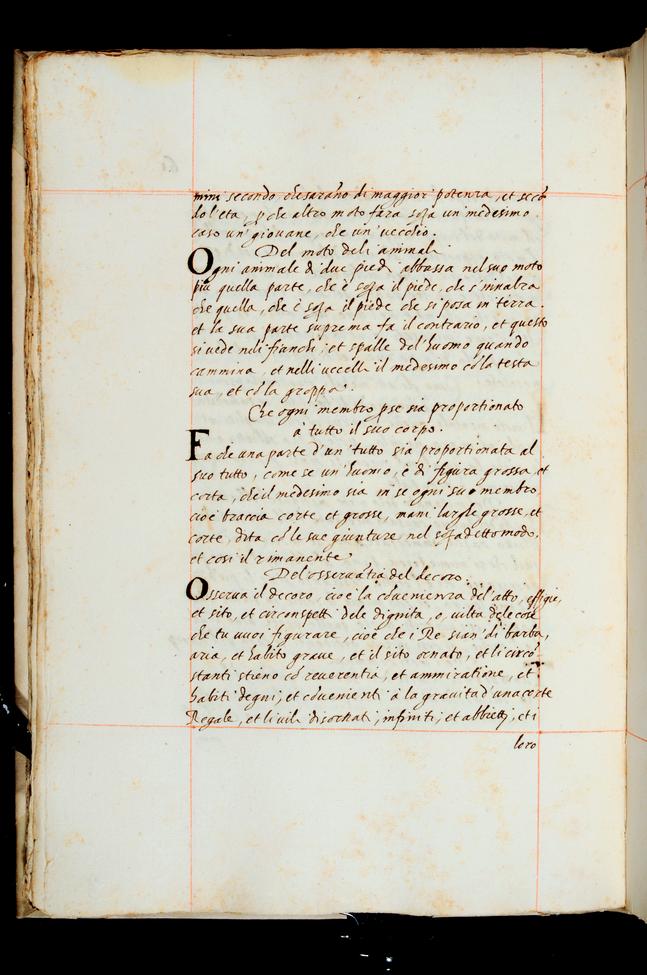 mini secondo che sarāno di maggior potenza, et secō
do l'eta, p che altro moto fara sopa un medesimo
caso un giovane, che un vecchio.
Del moto deli animali
Ogni animale di due piedi abbassa nel suo moto
più quella parte, che è sopa il piede, che s'innalza
che quella, che è sopa il piede che si posa in terra.
et la sua parte suprema fa il contrario, et questo
si vede neli fianchi, et spalle del'huomo quando
cammina, et nelli uccelli il medesimo cō la testa
sua, et cō la groppa.
Che ogni membro pse sia proportionato
à tutto il suo corpo.
Fa che una parte d'un tutto sia proportionata al
suo tutto, come se un huomo, è di figura grossa, et
corta, che il medesimo sia in se ogni suo membro,
cioè braccia corte, et grosse, mani larghe grosse, et
corte, dita cō le sue giunture nel sopadetto modo,
et cosi il rimanente
Del osservātia del decoro.
Osserva il decoro, cioè la cōvenienza del'atto, effigie,
et sito, et circonspetti dele dignita, o, viltà dele cose
che tu vuoi figurare, cioè che i Re sian di barba,
aria, et habito grave, et il sito ornato, et li circō-
stanti stieno cō reverentia, et ammiratione, et
habiti degni, et cōvenienti à la gravita d'una corte
Regale, et li vili disornati, infiniti, et abbietti, et i
loro